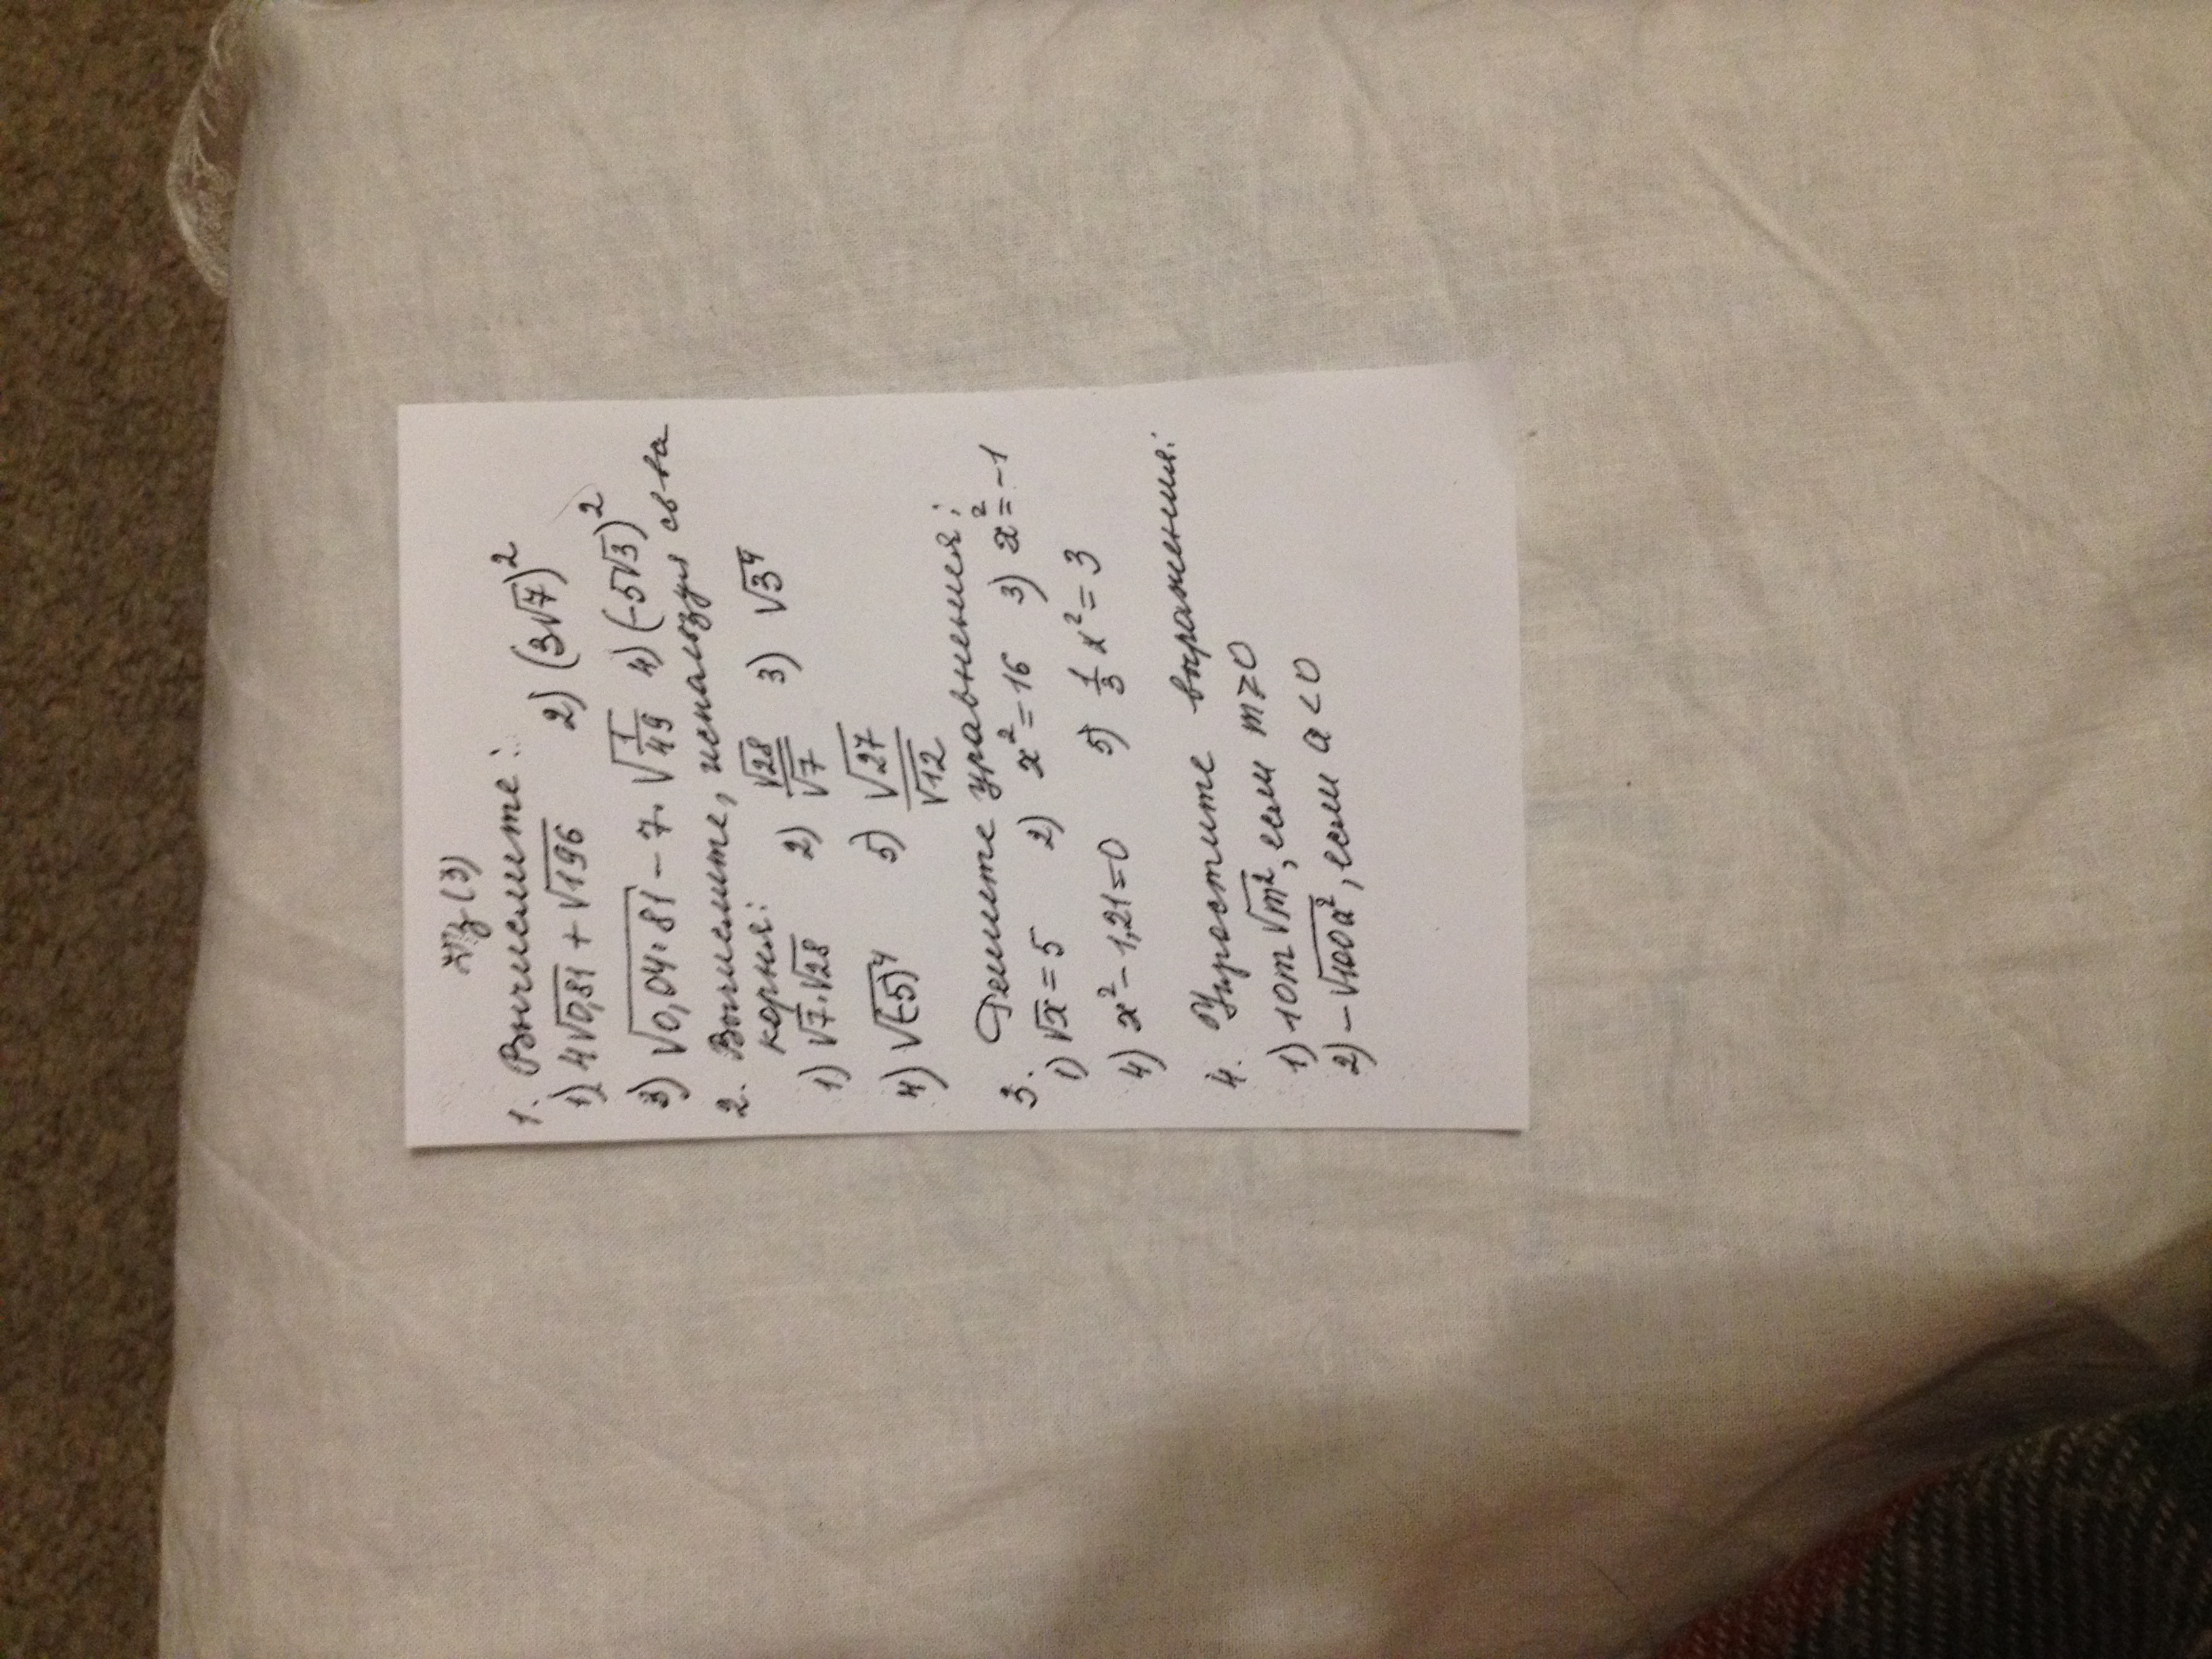 ДЗ (3)
1. Вычислите:
1) 4√0,81 + √196 2) (3√7)²
3) √0,04·81 - 7·√1/49 4) (-5√3)²
2. Вычислите, используя св-ва
корня:
1) √7·√28 2) √28/√7 3) √3⁴
4) √(-5)⁴ 5) √27/√12
3. Решите уравнения:
1) √x = 5 2) x² = 16 3) x² = -1
4) x² - 1,21 = 0 5) 1/3 x² = 3
4. Упростите выражения:
1) 10m√m², если m ≥ 0
2) -√100a², если a < 0